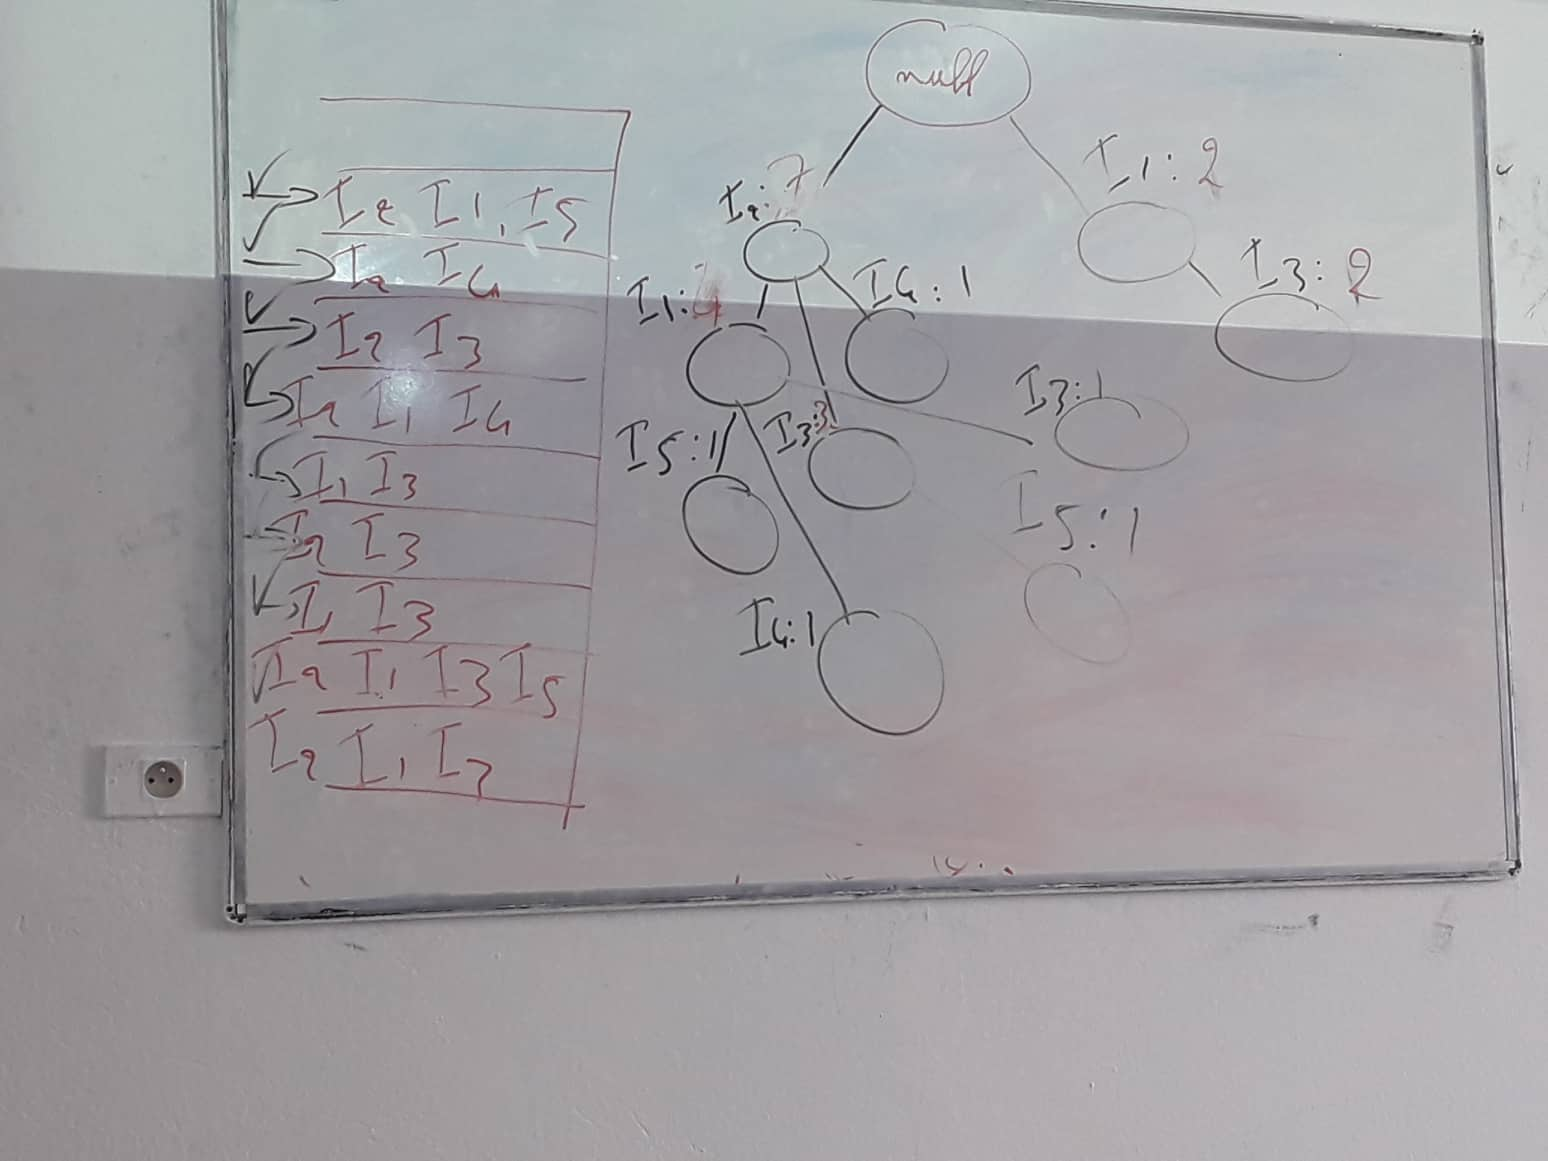 I2 I1, I5
I2 I4
I2 I3
I2 I1 I4
I1 I3
I2 I3
I1 I3
I2 I1 I3 I5
I2 I1 I3
null
I2:7
I1:2
I1:4
I4:1
I3:2
I5:1
I3:3
I3:1
I5:1
I4:1